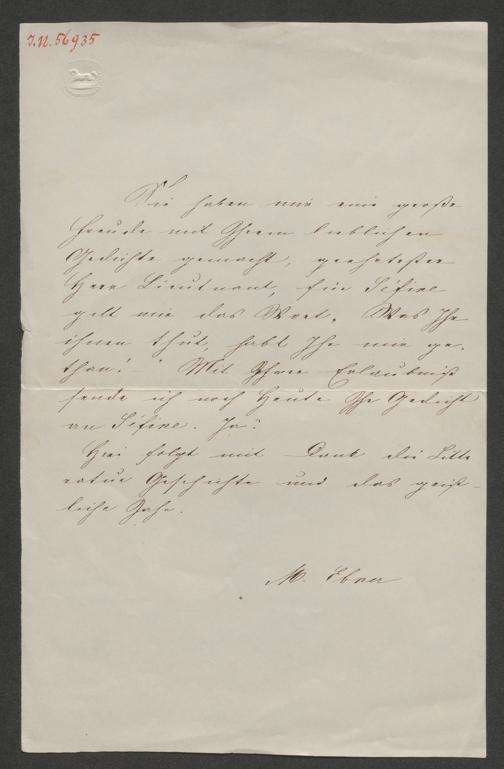 J.N. 56935
Sie haben mir eine große
Freude mit Ihrem lieblichen
Gedichte gemacht, geehrtester
Herr Lieutnant, für Sefine
gilt mir das Wort. Was Ihr
ihnen thut, habt Ihr mir ge-
than! – Mit Ihrer Erlaubniß
sende ich noch heute Ihr Gedicht
an Sefine. Ja?
Hier folgt mit Dank die Litte
ratur Geschichte und das geist-
liche Jahr.
M. Ebner